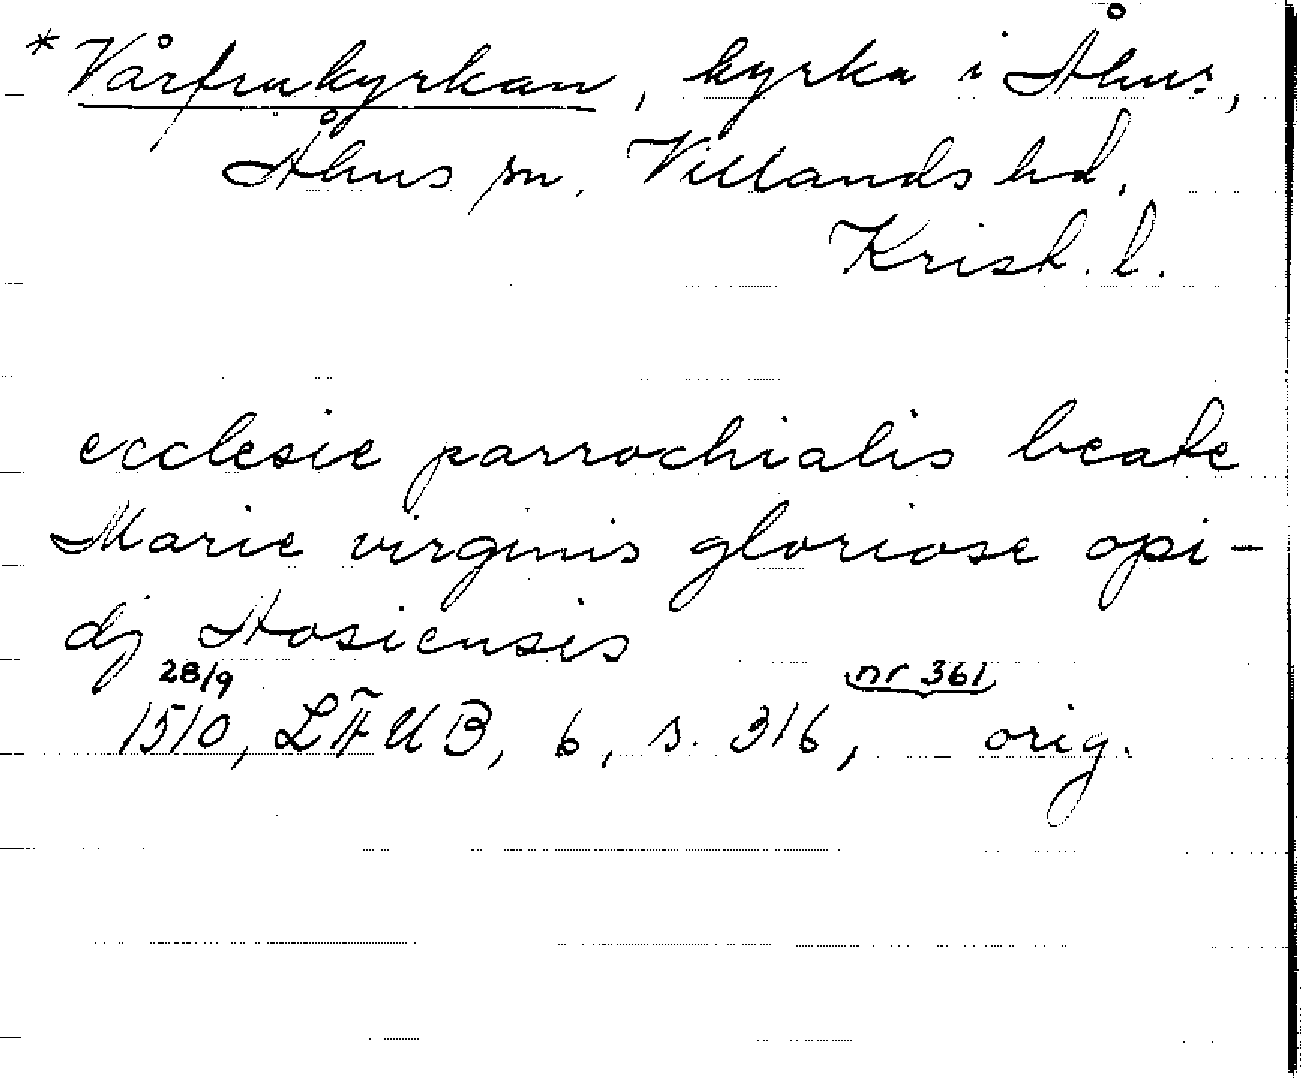 *Vårfrukyrkan, kyrka i Åhus,
Åhus sn. Villands hd.
Krist. l.
ecclesie parrochialis beate
Marie virginis gloriose opi-
dj Aosiensis
28/9 nr 361
1510, LÄUB, 6, s. 316, orig.